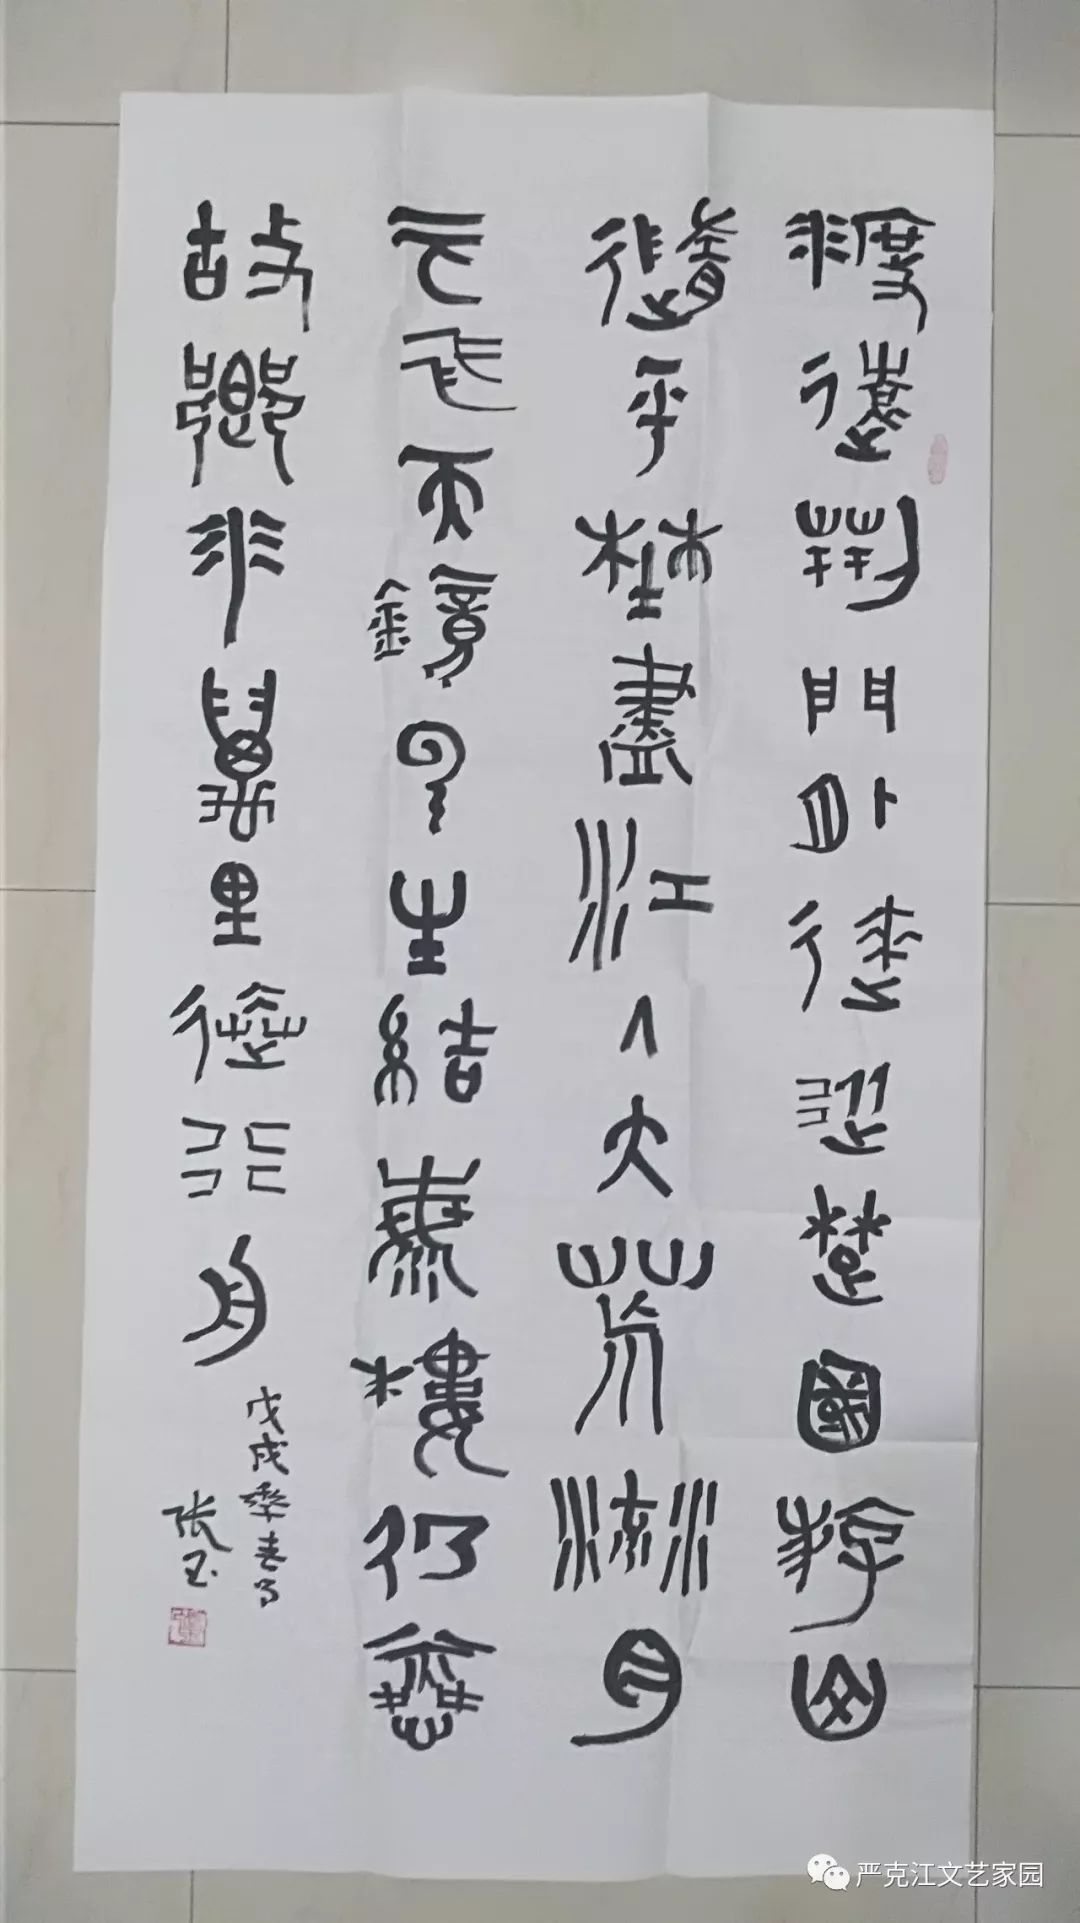 渡遠荆門外來從楚國游山
隨平埜盡江入大荒流月
下飛天鏡雲生結海樓仍憐
故鄉水萬里送行舟
戊戌季春
张玉
严克江文艺家园